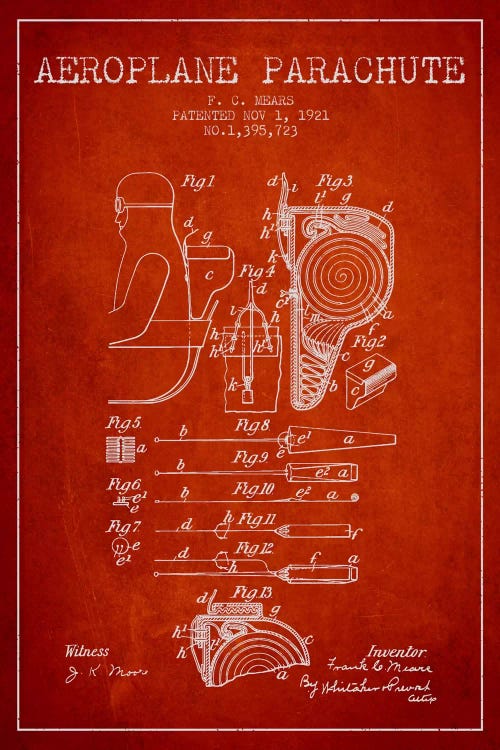 AEROPLANE PARACHUTE
F. C. MEARS
PATENTED NOV 1, 1921
NO.1,395,723
Fig.1
d
g
c
Fig.3.
d
l
l¹
g
d
h
h¹
k
c¹
l
m
a
f
c
b
Fig.4
d
l
h
h
h¹
h¹
k
Fig.2
g
c
Fig.5.
a
b
Fig.8
e
e¹
a
b
Fig.9
e²
a
Fig.6
e¹
e
b
Fig.10
e²
a
Fig.7
e
e¹
d
h
Fig.11
f
d
h
Fig.12
f
a
Fig.13
d
g
h¹
h
c
a
Witness
J. K. Moore
Inventor
Frank C. Mears
By Whitaker Prevost
Attys